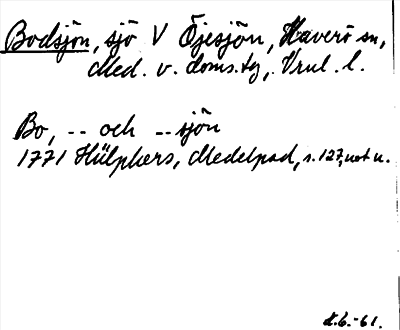 Bodsjön, sjö V Öjesjön, Haverö sn,
Med. v. doms.tg,. Vrnl. l.
Bo, -- och -- sjön
1771 Hülphers, Medelpad, s. 127, not u.
d.b.-61.